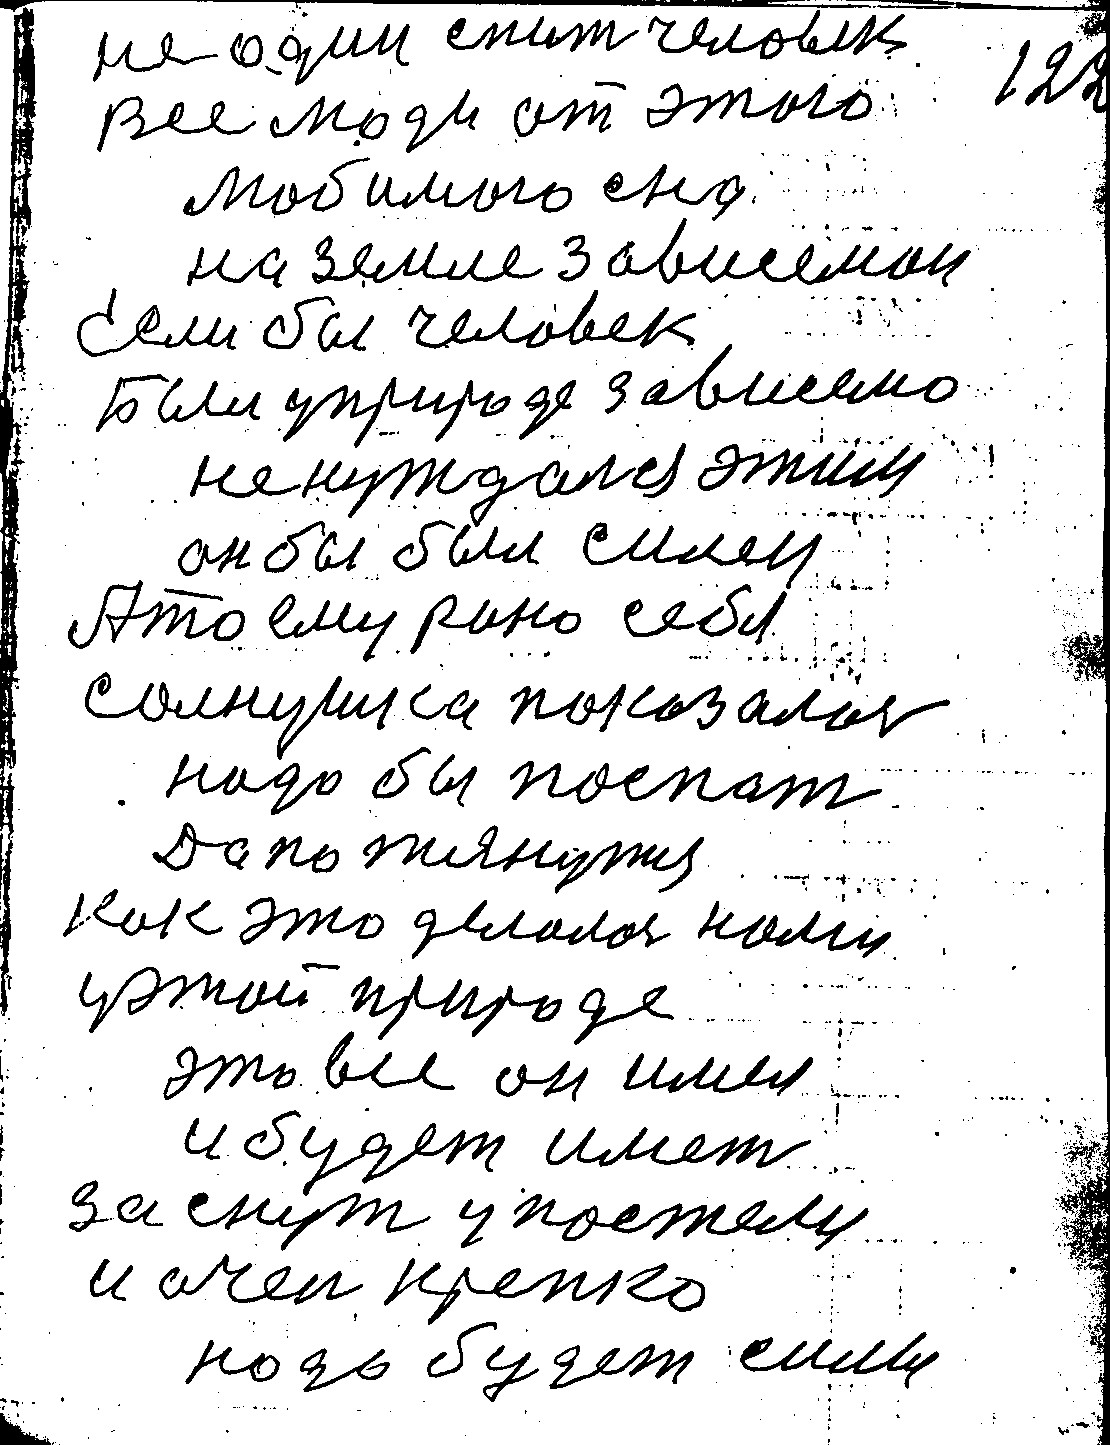 не один спит человек
122
Все люди от этого
любимого сна
на земле зависемои
Если бы человек
Были у природе зависемо
не нуждался этим
он бы был силен
А то ему рано себя
солнушка показалоя
надо бы поспат
Да потянутся
Как это делалоя нами
у этой природе
это все он имел
и будет имет
заснут у постели
и очен крепко
надо будет силы